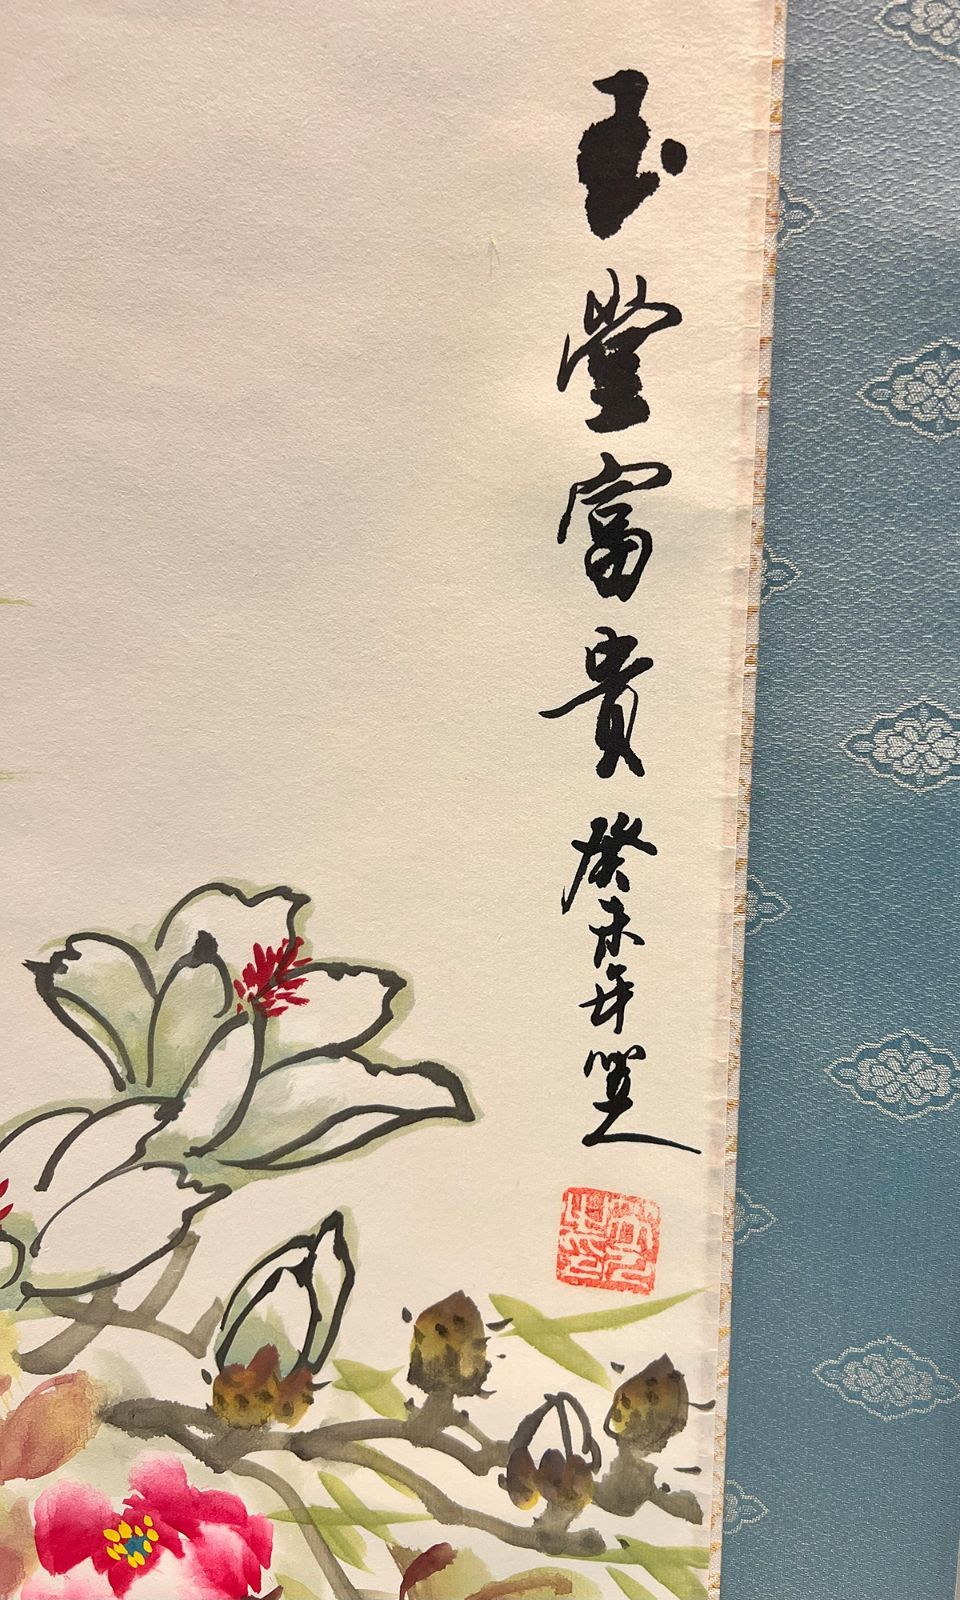 玉堂富貴 癸未年